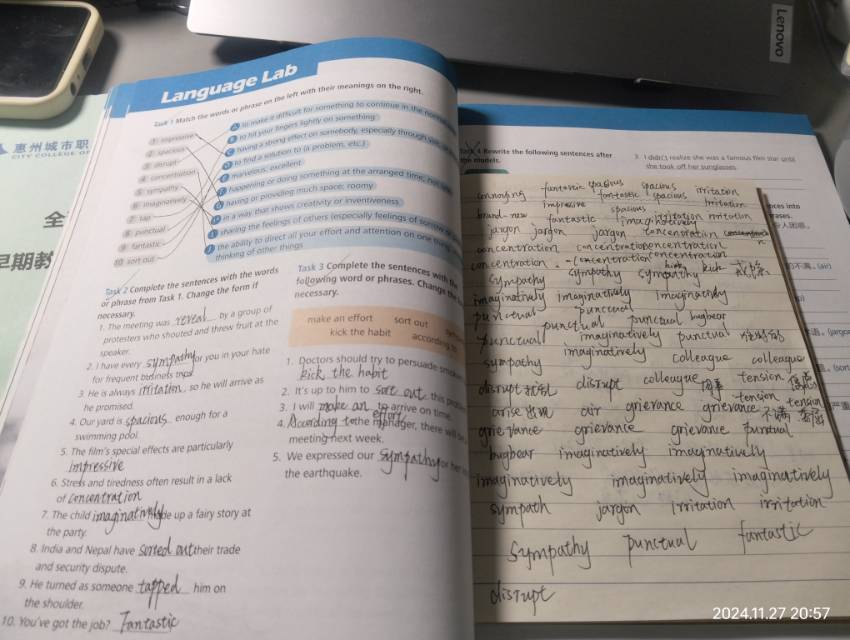 Lenovo
惠州城市职
CITY COLLEGE OF
全
早期教
Language Lab
Task 1 Match the words or phrase on the left with their meanings on the right.
1 impressive
2 spacious
3 disrupt
4 concentration
5 sympathy
6 imaginatively
7 tap
8 punctual
9 fantastic
10 sort out
A to make it difficult for something to continue in the normal
B to hit your fingers lightly on something
C having a strong effect on somebody, especially through
D to find a solution to (a problem, etc.)
E marvelous; excellent
F happening or doing something at the arranged time;
G having or providing much space; roomy
H in a way that shows creativity or inventiveness
I sharing the feelings of others (especially feelings of sorrow
J the ability to direct all your effort and attention on one
thinking of other things
Task 2 Complete the sentences with the words
or phrase from Task 1. Change the form if
necessary.
1. The meeting was reveal by a group of
protesters who shouted and threw fruit at the
speaker.
2. I have every sympathy for you in your hate
for frequent business trips.
3. He is always irritation, so he will arrive as
he promised.
4. Our yard is spacious enough for a
swimming pool.
5. The film's special effects are particularly
impressive
6. Stress and tiredness often result in a lack
of concentration
7. The child imaginatively made up a fairy story at
the party.
8. India and Nepal have sorted out their trade
and security dispute.
9. He turned as someone tapped him on
the shoulder.
10. You've got the job? Fantastic
Task 3 Complete the sentences with the
following word or phrases. Change the
necessary.
make an effort sort out
kick the habit according to
1. Doctors should try to persuade
kick the habit
2. It's up to him to sort out this
3. I will make an effort to arrive on time.
4. According to the manager, there will be
meeting next week.
5. We expressed our sympathy for
the earthquake.
Task 4 Rewrite the following sentences after
models.
3 I didn't realize she was a famous film star until
she took off her sunglasses.
annoying fantastic spacious spacious irritation
impressive fantastic spacious irritation
brand-new fantastic spacious irritation irritation
imaginatively
jargon jargon jargon concentration
concentration concentration concentration
concentration concentration concentration
sympathy sympathy sympathy kick
imaginatively imaginatively imaginatively
punctual punctual
punctual punctual bugbear
punctuall imaginatively punctual
sympathy imaginatively colleague colleague
disrupt 扰乱 disrupt colleague 同事 tension
tension tension
arise 出现 air grievance grievance 不满
grievance grievance grievance punctual
bugbear imaginatively imaginatively
imaginatively imaginatively imaginatively
sympath jargon irritation irritation
sympathy punctual fantastic
disrupt
2024.11.27 20:57